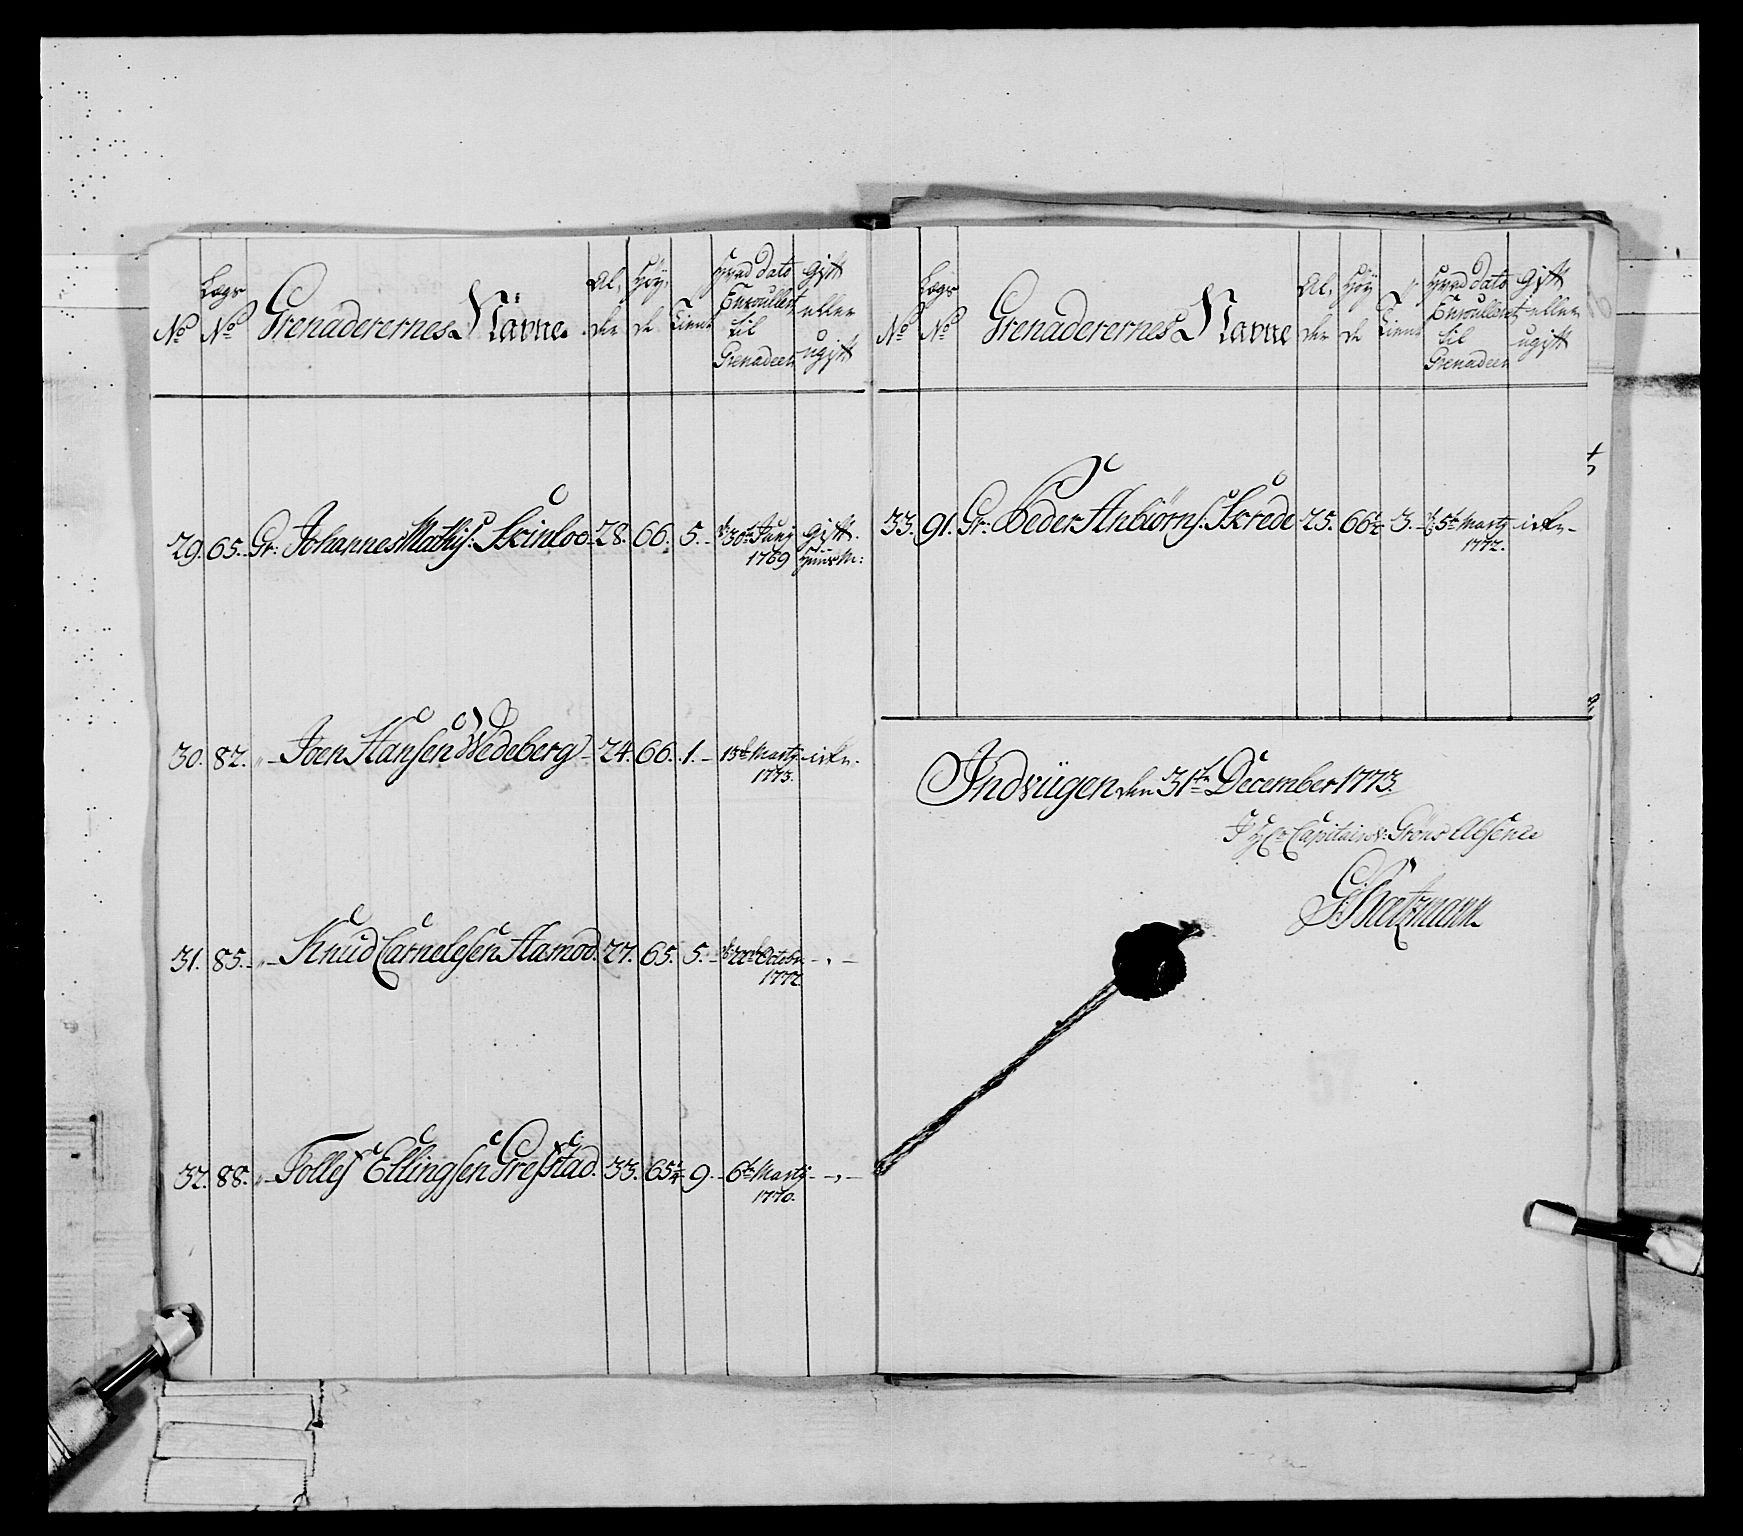 No Lægs No Grenaderernes Navne. Al, der Høy, de Tient Hvad dato Enroullert til Grenadeer Gift eller ugift
29. 65. Gr: Johannes Mathis: Skinloo 28. 66. 5. 30te Junj 1769 Gift. Huusm:
30. 82. " Joen Hansen Wedeberg 24. 66. 1. 13de Martj 1773. icke.
31. 85. " Knud Carnelesen Hamod. 27. 65. 5. Octobr. 1772 " 
32. 88. " Tolles Ellingsen Gresstad. 33. 65 9. 6te Martj 1770. "
No Lægs No Grenaderernes Navne Al, der Høy de Tient Hvad dato Enroullert til Grenadeer Gift eller ugift
33. 91. Gr: Peder Anbiørns. Skrede 25. 66½ 3. 5te Martj 1772. icke
Indviigen den 31te December 1773.
Capitain v: Grøns Absence